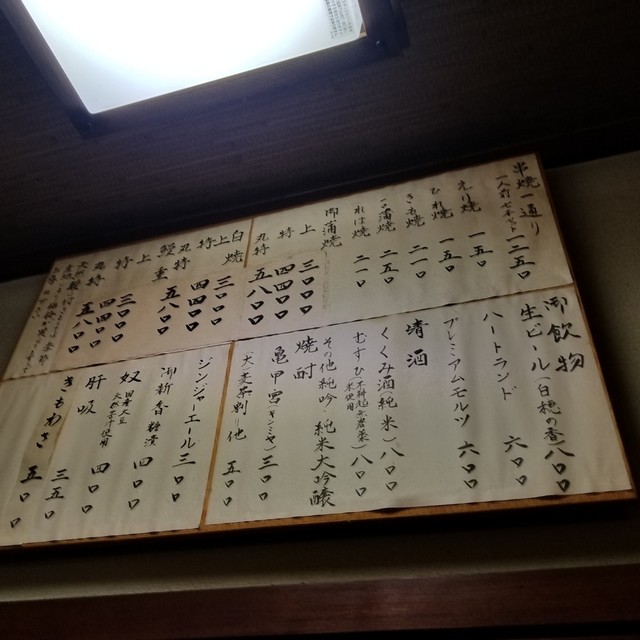 串焼一通り
一人前七本セット 一二五〇
えり焼 一五〇
ひれ焼 一五〇
きも焼 二一〇
一口蒲焼 二五〇
れば焼 二一〇
御蒲焼
上 三〇〇〇
特 四四〇〇
丸特 五八〇〇
白焼
上 三〇〇〇
特 四四〇〇
丸特 五八〇〇
鰻重
上 三〇〇〇
特 四四〇〇
丸特 五八〇〇
御飲物
生ビール(白穂の香)八〇〇
ハートランド 六〇〇
プレミアムモルツ 六〇〇
清酒
くくみ酒(純米)八〇〇
むすひ 八〇〇
その他純吟・純米大吟醸
焼酎
亀甲宮(キンミヤ)三〇〇
他 五〇〇
ジンジャーエール 三〇〇
御新香 糠漬 四〇〇
奴 四〇〇
肝吸 四〇〇
きもわさ 三五〇
五〇